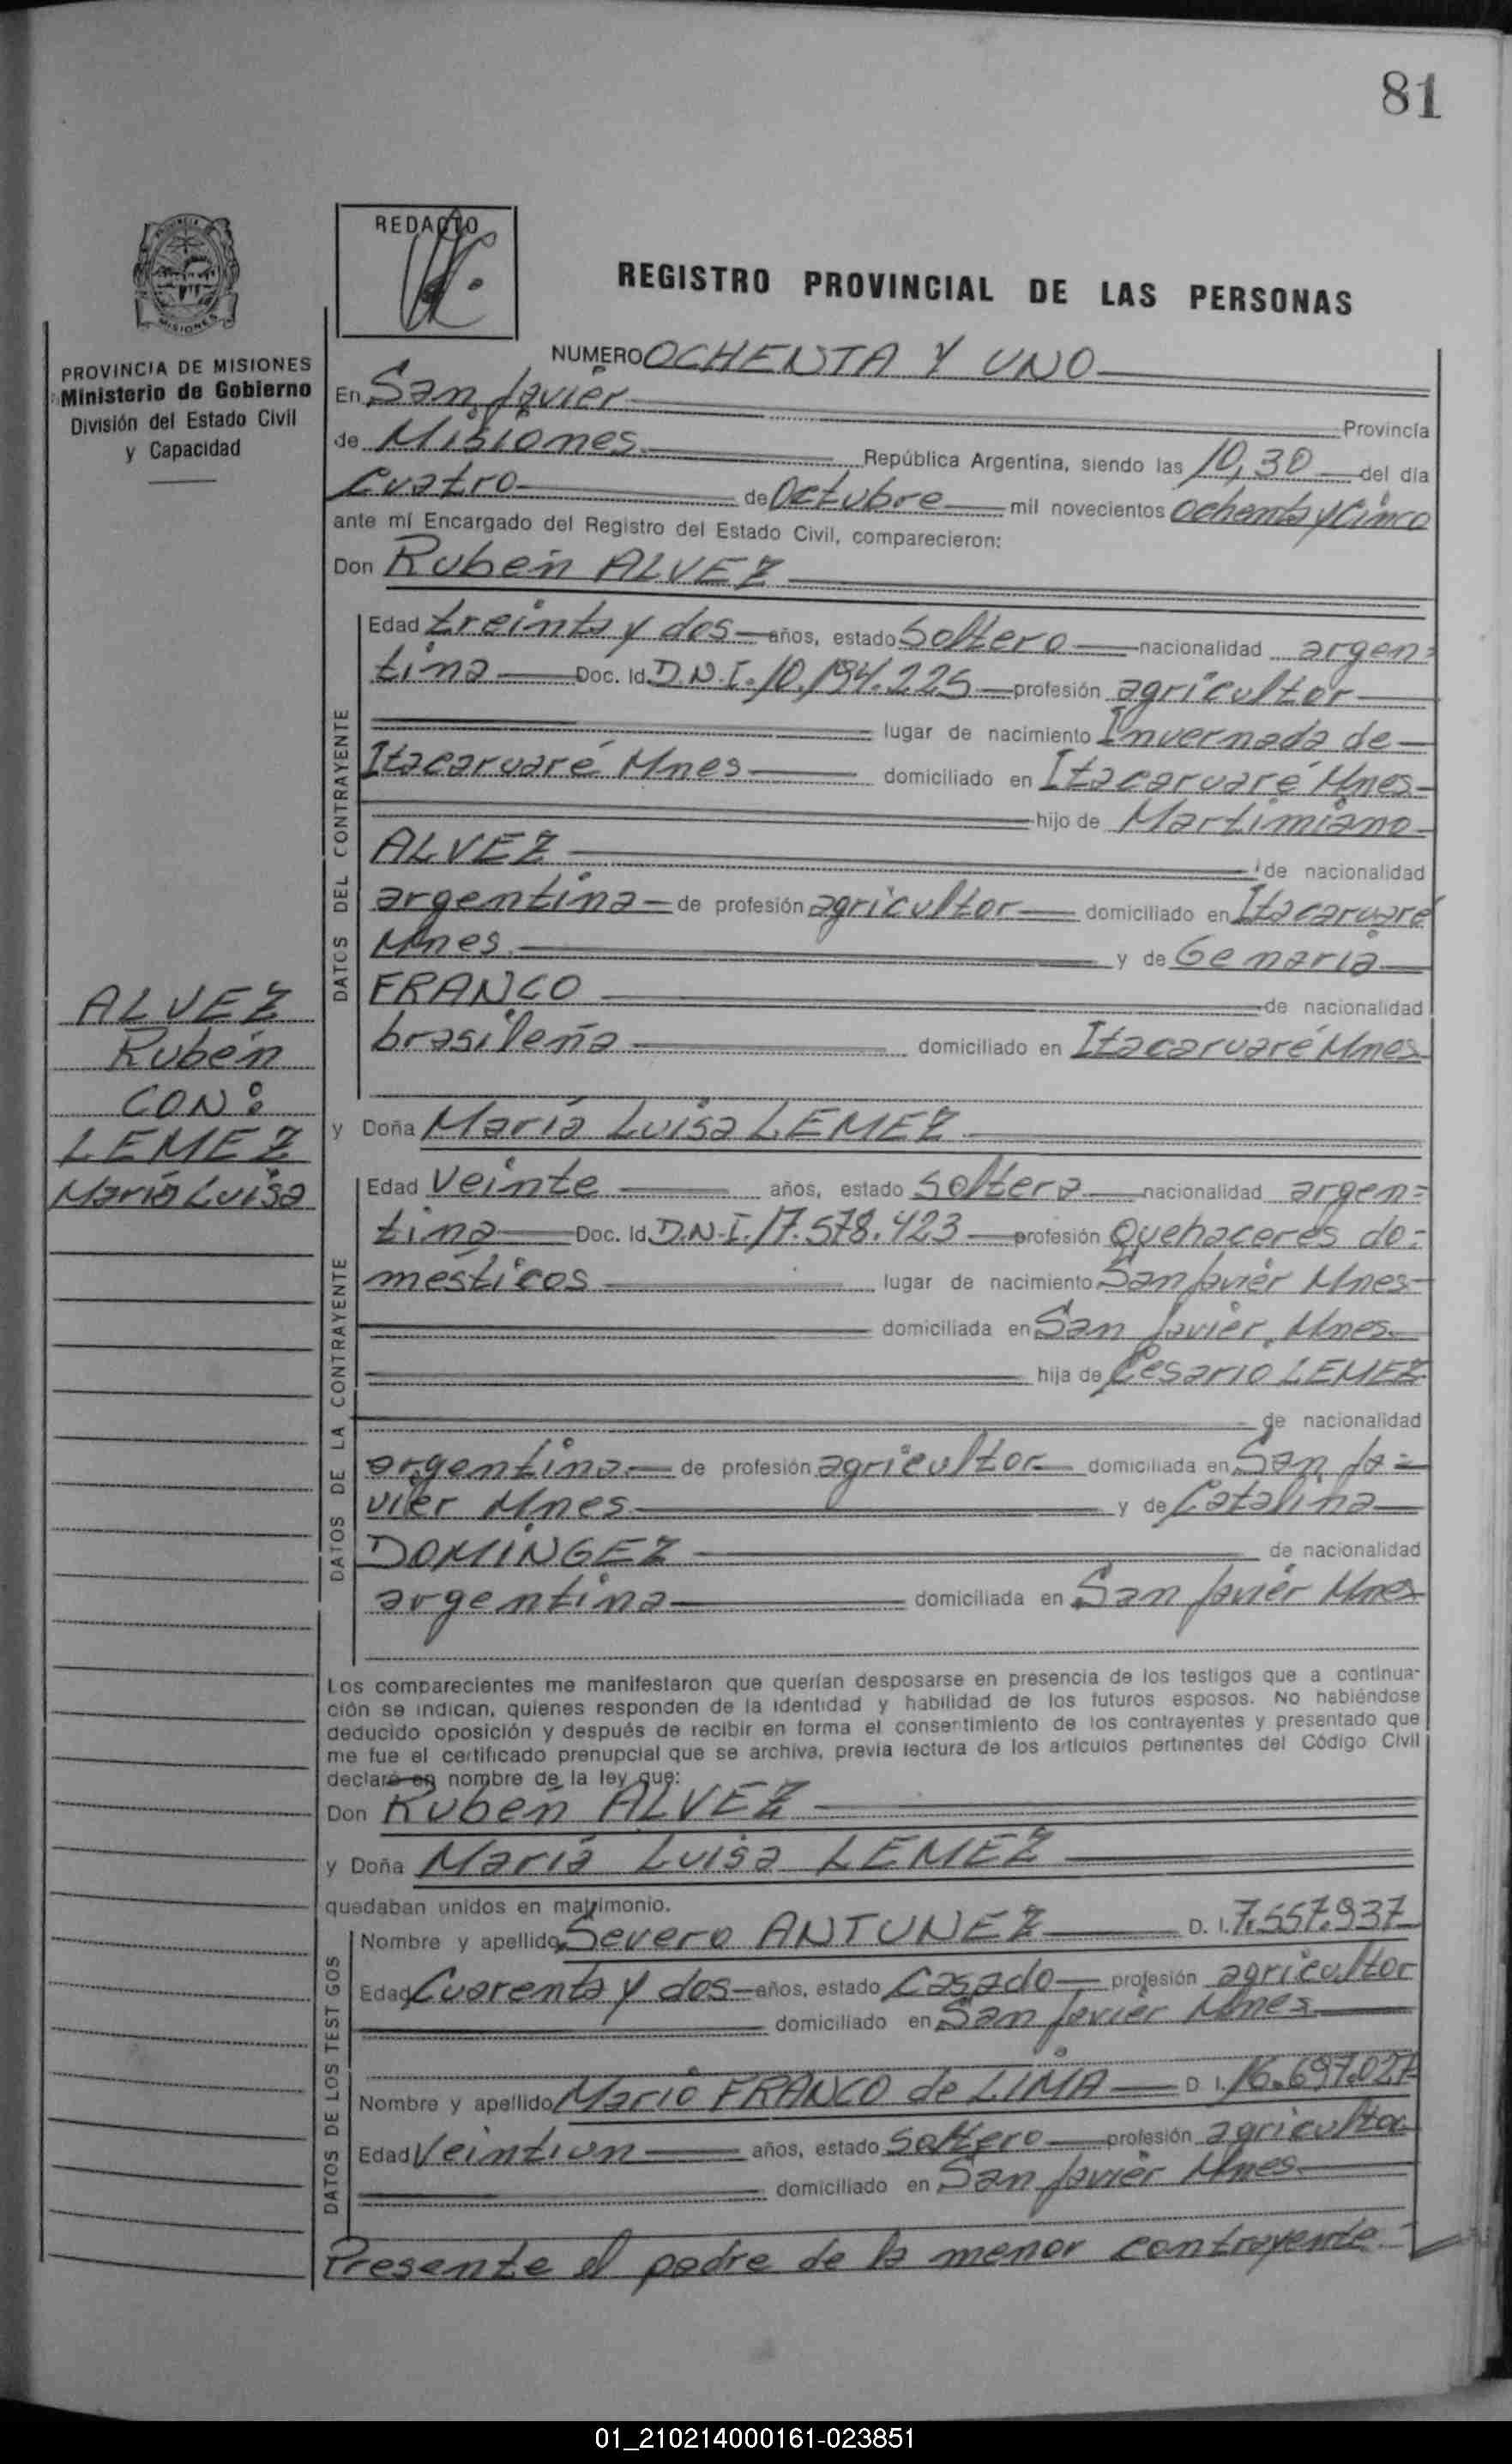 81
REDACTO
REGISTRO PROVINCIAL DE LAS PERSONAS
MISIONES
PROVINCIA DE MISIONES
Ministerio de Gobierno
División del Estado Civil
y Capacidad
NUMERO OCHENTA Y UNO
En San Javier Provincia
de Misiones República Argentina, siendo las 10,30 del día
cuatro de Octubre mil novecientos ochenta y cinco
ante mí Encargado del Registro del Estado Civil, comparecieron:
Don Rubén ALVEZ
DATOS DEL CONTRAYENTE
Edad treinta y dos años, estado soltero nacionalidad argen=
tina Doc. Id. D.N.I. 10.194.225 profesión agricultor
lugar de nacimiento Invernada de
Itacaruaré Mnes domiciliado en Itacaruaré Mnes
hijo de Martimiano
ALVEZ de nacionalidad
argentina de profesión agricultor domiciliado en Itacaruaré
Mnes. y de Genaria
FRANCO de nacionalidad
brasileña domiciliado en Itacaruaré Mnes
ALVEZ
Rubén
CON:
LEMEZ
María Luisa
y Doña María Luisa LEMEZ
DATOS DE LA CONTRAYENTE
Edad veinte años, estado soltera nacionalidad argen=
tina Doc. Id. D.N.I. 17.578.423 profesión Quehaceres do=
mésticos lugar de nacimiento San Javier Mnes
domiciliada en San Javier, Mnes.
hija de Cesario LEMEZ
de nacionalidad
argentina de profesión agricultor domiciliada en San Ja=
vier Mnes. y de Catalina
DOMINGEZ de nacionalidad
argentina domiciliada en San Javier Mnes
Los comparecientes me manifestaron que querían desposarse en presencia de los testigos que a continua-
ción se indican, quienes responden de la identidad y habilidad de los futuros esposos. No habiéndose
deducido oposición y después de recibir en forma el consentimiento de los contrayentes y presentado que
me fue el certificado prenupcial que se archiva, previa lectura de los artículos pertinentes del Código Civil
declaré en nombre de la ley que:
Don Rubén ALVEZ
y Doña María Luisa LEMEZ
quedaban unidos en matrimonio.
DATOS DE LOS TESTIGOS
Nombre y apellido Severo ANTUNEZ D. I. 7.557.937
Edad Cuarenta y dos años, estado casado profesión agricultor
domiciliado en San Javier Mnes
Nombre y apellido Mario FRANCO de LIMA D. I. 16.697.027
Edad Veintiun años, estado soltero profesión agricultor
domiciliado en San Javier Mnes
Presente el padre de la menor contrayente
01_210214000161-023851